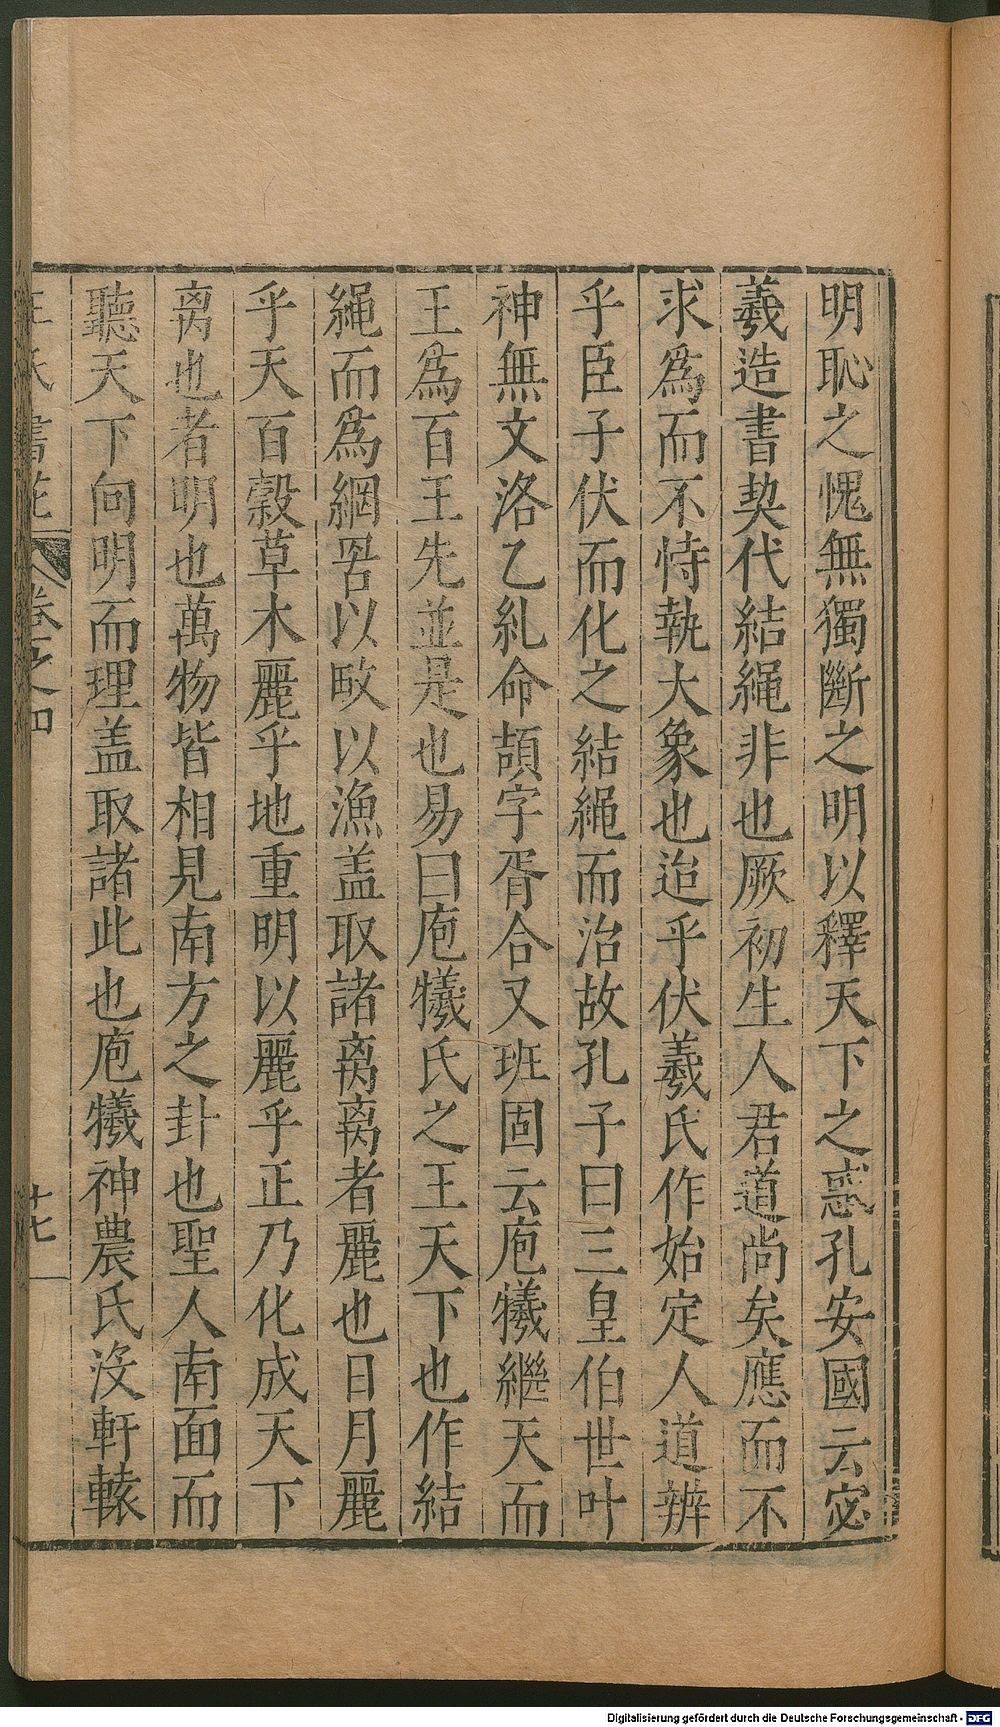 明恥之愧無獨斷之明以釋天下之惑孔安國云宓
羲造書契代結繩非也厥初生人君道尚矣應而不
求為而不恃執大象也迨乎伏羲氏作始定人道辨
乎臣子伏而化之結繩而治故孔子曰三皇伯世叶
神無文洛乙紀命頡字胥合又班固云庖犧繼天而
王為百王先並是也易曰庖犧氏之王天下也作結
繩而為網罟以畋以漁盖取諸离离者麗也日月麗
乎天百穀草木麗乎地重明以麗乎正乃化成天下
离也者明也萬物皆相見南方之卦也聖人南面而
聽天下向明而理盖取諸此也庖犧神農氏沒軒轅
王氏書苑 卷之四 廿七
Digitalisierung gefördert durch die Deutsche Forschungsgemeinschaft - DFG